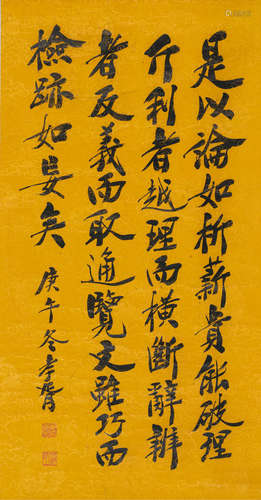 是以論如析薪貴能破理
斤利者越理而橫斷辭辨
者反義而取通覽文雖巧而
檢跡如妄矣
庚午冬孝胥